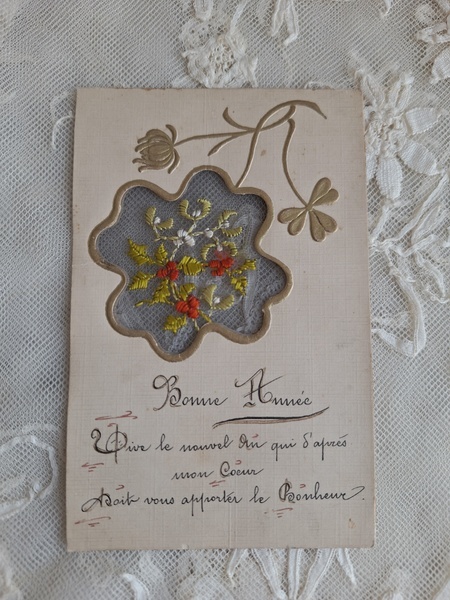 Bonne Année
Vive le nouvel An qui d'après
mon Coeur
Doit vous apporter le Bonheur.